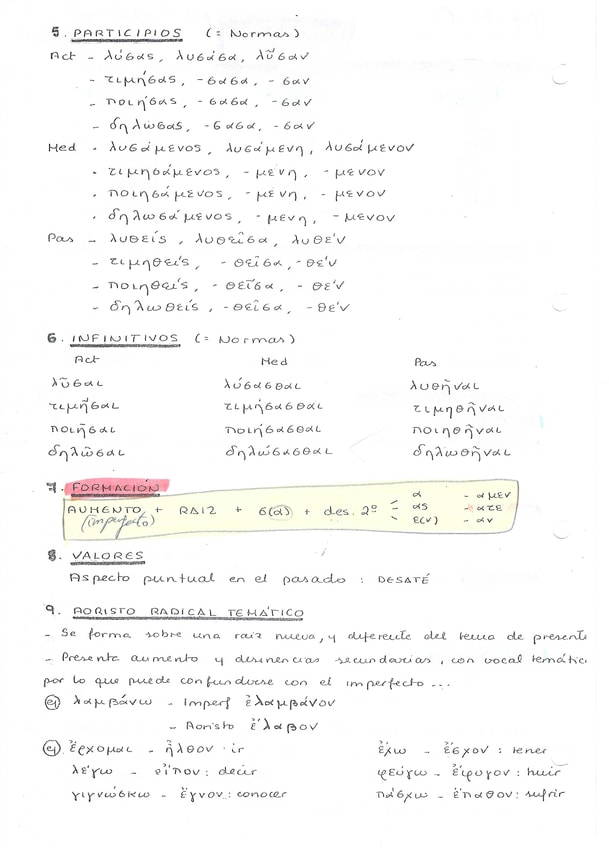 5. PARTICIPIOS (= Normas)
Act - λύσας, λυσάσα, λῦσαν
- τιμήσας, -σασα, -σαν
- ποιήσας, -σασα, -σαν
- δηλώσας, -σασα, -σαν
Med - λυσάμενος, λυσάμενη, λυσάμενον
- τιμησάμενος, -μενη, -μενον
- ποιησάμενος, -μενη, -μενον
- δηλωσάμενος, -μενη, -μενον
Pas - λυθείς, λυθεῖσα, λυθέν
- τιμηθείς, -θεῖσα, -θέν
- ποιηθείς, -θεῖσα, -θέν
- δηλωθείς, -θεῖσα, -θέν
6. INFINITIVOS (= Normas)
Act Med Pas
λῦσαι λύσασθαι λυθῆναι
τιμῆσαι τιμήσασθαι τιμηθῆναι
ποιῆσαι ποιήσασθαι ποιηθῆναι
δηλῶσαι δηλώσασθαι δηλωθῆναι
7. FORMACIÓN
α - αμεν
AUMENTO + RAIZ + σ(α) + des. 2º - ας - ατε
(imperfecto) ε(ν) - αν
8. VALORES
Aspecto puntual en el pasado : DESATÉ
9. AORISTO RADICAL TEMÁTICO
- Se forma sobre una raiz nueva, y diferente del tema de present
- Presenta aumento y desinencias secundarias, con vocal temátic
por lo que puede confundirse con el imperfecto ...
ej λαμβάνω - Imperf ἐλαμβάνον
- Aoristo ἔλαβον
ej ἔρχομαι - ἦλθον : ir ἔχω - ἔσχον : tener
λέγω - εἶπον : decir φεύγω - ἔφυγον : huir
γιγνώσκω - ἔγνον : conocer πάσχω - ἔπαθον : sufrir